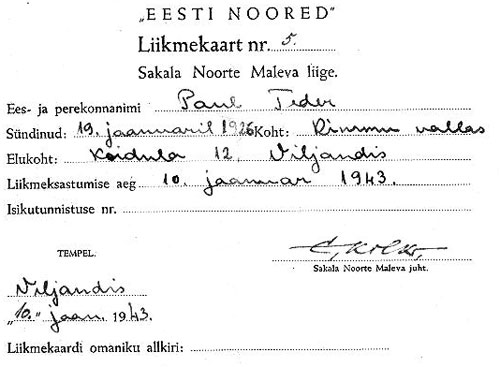 „EESTI NOORED"
Liikmekaart nr. 5.
Sakala Noorte Maleva liige.
Ees- ja perekonnanimi Paul Teder
Sündinud: 19. jaanuaril 1926 Koht: Rimmu vallas
Elukoht: Koidula 12. Viljandis
Liikmeksastumise aeg 10. jaanuar 1943.
Isikutunnistuse nr.
TEMPEL.
Sakala Noorte Maleva juht.
Viljandis
„10." jaan. 1943.
Liikmekaardi omaniku allkiri: